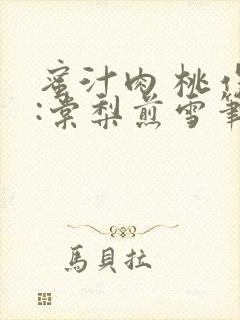 蜜汁肉桃作
:棠梨煎雪筆
馬貝拉